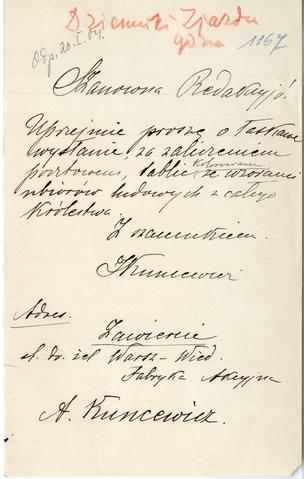 Odp. 20. I. 04.
1167
Szanowna Redakcyjo.
Uprzejmie proszę o łaskawe
wysłanie, za zaliczeniem
pocztowem, tablic kolorowane ze wzorami
ubiorów ludowych z całego
Królestwa.
Z szacunkiem.
Kuncewicz
Adres.
Zawiercie
st. dr. żel Warsz-Wied.
Fabryka Akcyjna
A. Kuncewicz.